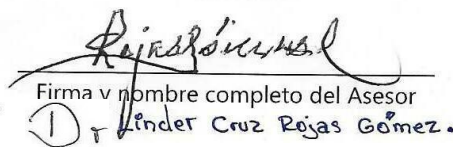 Firma y nombre completo del Asesor
Dr Linder Cruz Rojas Gómez.